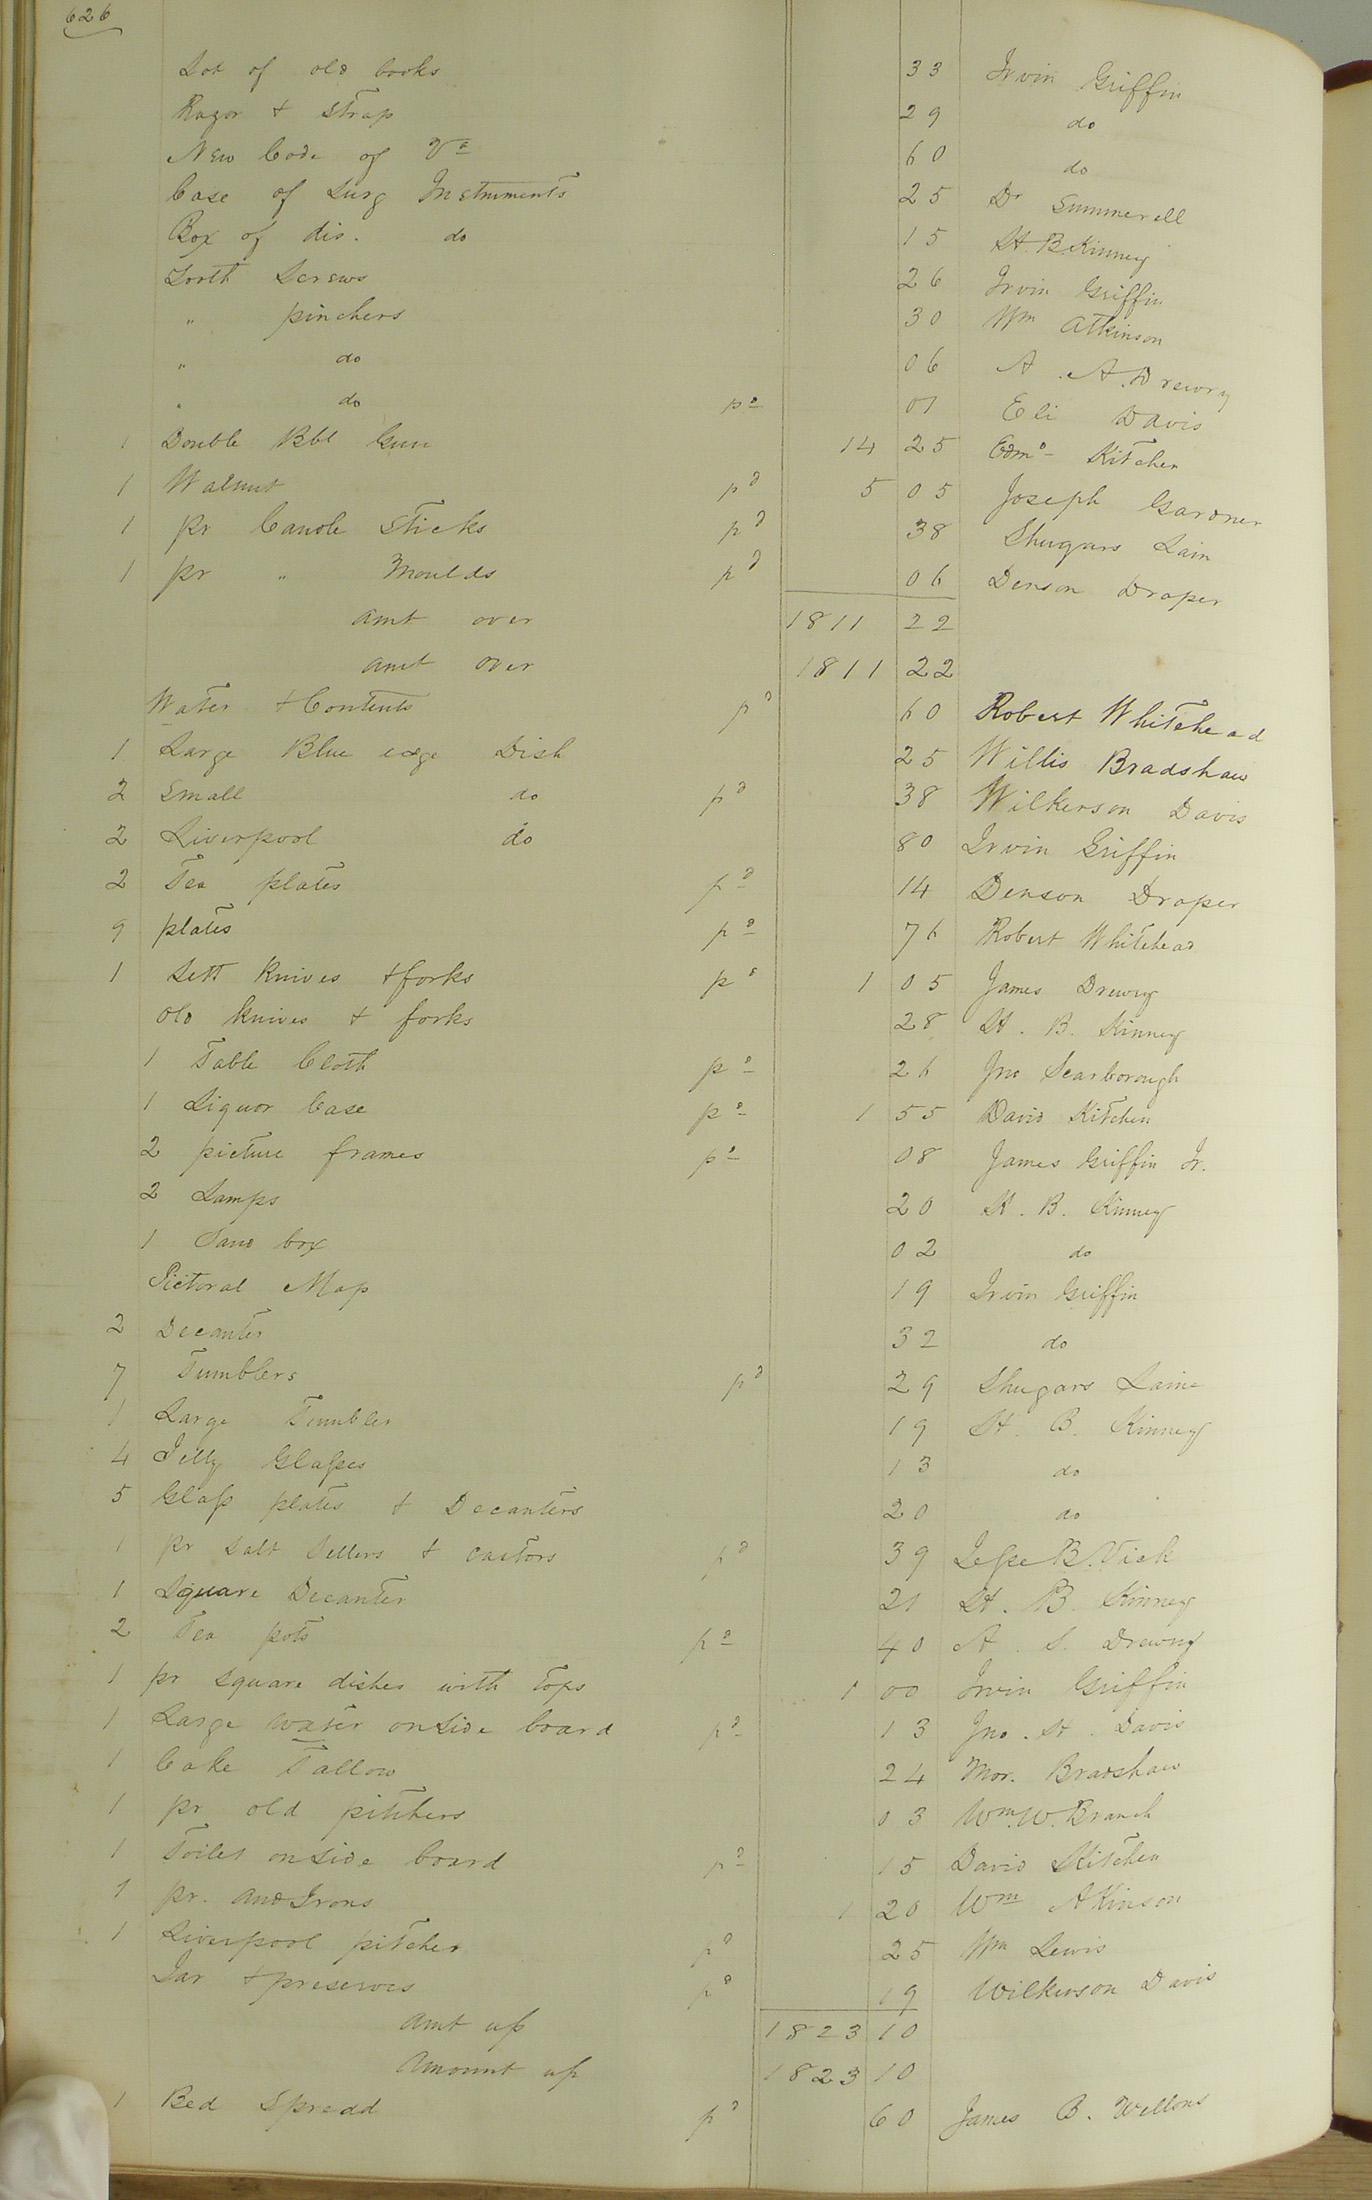 626
Lot of old books 33 Irvin Griffin
Razor & Strap 29 do
New Code of Va 60 do
Case of Surg Instruments 25 Dr Summerell
Box of dis. do 15 H. B. Kinney
Tooth Screws 26 Irvin Griffin
" pinchers 30 Wm Atkinson
" do 06 A. A. Drewry
" do pd 01 Eli Davis
1 Double Bbl Gun 14 25 Edmd Kitchen
1 Walnut pd 5 05 Joseph Gardner
1 pr Candle Sticks pd 38 Shugars Lain
1 pr " Moulds pd 06 Denson Draper
amt over 1811 22
amt over 1811 22
Water & Contents pd 60 Robert Whitehead
1 Large Blue edge Dish 25 Willis Bradshaw
2 Small do pd 38 Wilkerson Davis
2 Liverpool do 80 Irvin Griffin
2 Tea plates pd 14 Denson Draper
9 plates pd 76 Robert Whitehead
1 Sett Knives & forks pd 1 05 James Drewry
Old Knives & forks 28 H. B. Kinney
1 Table Cloth pd 26 Jno Scarborough
1 Liquor Case pd 1 55 David Kitchen
2 picture frames pd 08 James Griffin Jr.
2 Lamps 20 H. B. Kinney
1 Sand box 02 do
Pictoral Map 19 Irvin Griffin
2 Decanter 32 do
7 Tumblers pd 29 Shugars Laine
1 Large Tumbler 19 H. B. Kinney
4 Jelly Glasses 13 do
5 Glass plates & Decanters 20 do
1 pr Salt Sellers & castors pd 39 Jesse B. Vick
1 Square Decanter 21 H. B. Kinney
2 Tea pots pd 40 A. S. Drewry
1 pr Square dishes with Tops 1 00 Irvin Griffin
1 Large water on Side board pd 13 Jno. H. Davis
1 Cake Tallow 24 Mor. Bradshaw
1 pr old pitchers 03 Wm. W. Branch
1 Toilet on Side board pd 15 David Kitchen
1 pr. And Irons 1 20 Wm Atkinson
1 Liverpool pitcher pd 25 Wm Lewis
Jar & preserves pd 19 Wilkerson Davis
Amt up 1823 10
Amount up 1823 10
1 Bed Spread pd 60 James B. Wellons